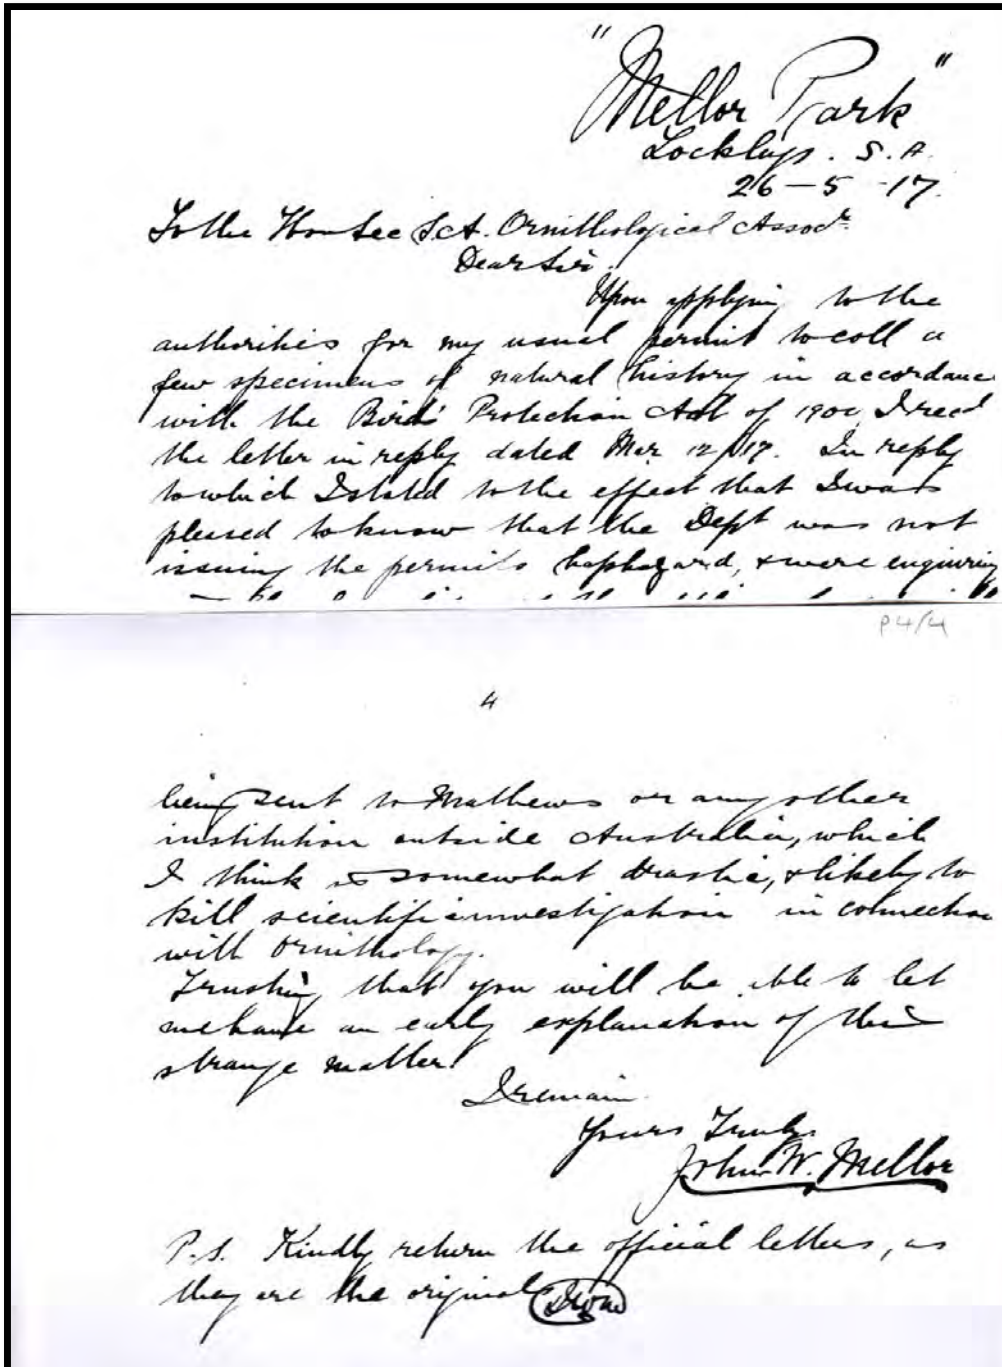 "Mellor Park"
Lockleys. S.A.
26-5-17.
To the Hon Sec S.A. Ornithological Assocn.
Dear Sir.
Upon applying to the
authorities for my usual permit to coll a
few specimens of natural history in accordance
with the Birds Protection Act of 1900, I recd
the letter in reply dated Mar 12/17. In reply
to which I stated to the effect that I was
pleased to know that the Dept was not
issuing the permits haphazard, & were enquiring
P4/4
4
being sent to Mathews or any other
institution outside Australia, which
I think is somewhat drastic, & likely to
kill scientific investigation in connection
with Ornithology.
Trusting that you will be able to let
me have an early explanation of this
strange matter.
I remain.
Yours Truly.
John W. Mellor
P.S. Kindly return the official letters, as
they are the original